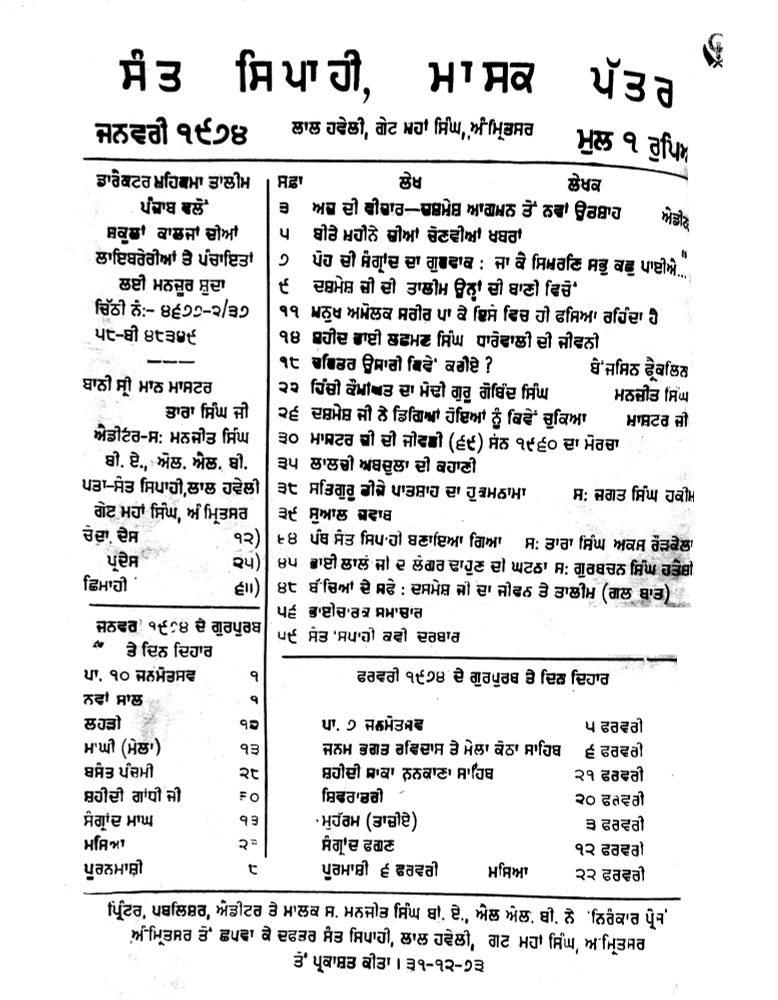 ਸੰਤ ਸਿਪਾਹੀ, ਮਾਸਕ ਪੱਤਰ
ਜਨਵਰੀ ੧੯੭੪
ਲਾਲ ਹਵੇਲੀ, ਗੇਟ ਮਹਾਂ ਸਿੰਘ, ਅੰਮ੍ਰਿਤਸਰ
ਮੁਲ ੧ ਰੁਪਿਅ
ਡਾਰੈਕਟਰ ਮਹਿਕਮਾ ਤਾਲੀਮ
ਪੰਜਾਬ ਵਲੋਂ
ਸਕੂਲਾਂ ਕਾਲਜਾਂ ਦੀਆਂ
ਲਾਇਬਰੇਰੀਆਂ ਤੇ ਪੰਚਾਇਤਾਂ
ਲਈ ਮਨਜ਼ੂਰ ਸ਼ੁਦਾ
ਚਿੱਠੀ ਨੰ:- ੪੬੭੭-੨/੩੭
੫੮-ਬੀ ੪੮੩੭੯
ਬਾਨੀ ਸ੍ਰੀ ਮਾਨ ਮਾਸਟਰ
ਤਾਰਾ ਸਿੰਘ ਜੀ
ਐਡੀਟਰ-ਸ: ਮਨਜੀਤ ਸਿੰਘ
ਬੀ. ਏ., ਐਲ. ਐਲ. ਬੀ.
ਪਤਾ-ਸੰਤ ਸਿਪਾਹੀ,ਲਾਲ ਹਵੇਲੀ
ਗੇਟ ਮਹਾਂ ਸਿੰਘ, ਅੰਮ੍ਰਿਤਸਰ
ਚੰਦਾ ਦੇਸ ੧੨)
ਪ੍ਰਦੇਸ ੨੫)
ਛਿਮਾਹੀ ੬॥)
ਜਨਵਰੀ ੧੯੭੪ ਦੇ ਗੁਰਪੁਰਬ
ਤੇ ਦਿਨ ਦਿਹਾਰ
ਪਾ. ੧੦ ਜਨਮੋਤਸਵ ੧
ਨਵਾਂ ਸਾਲ ੧
ਲਹੜੀ
ਮਾਘੀ (ਮੇਲਾ) ੧੩
ਬਸੰਤ ਪੰਚਮੀ ੨੮
ਸ਼ਹੀਦੀ ਗਾਂਧੀ ਜੀ
ਸੰਗ੍ਰਾਂਦ ਮਾਘ ੧੩
ਮਸਿਆ
ਪੂਰਨਮਾਸ਼ੀ ੮
ਸਫ਼ਾ ਲੇਖ ਲੇਖਕ
੩ ਅਜ ਦੀ ਵੀਚਾਰ—ਦਸ਼ਮੇਸ਼ ਆਗਮਨ ਤੋਂ ਨਵਾਂ ਉਤਸ਼ਾਹ
੫ ਬੀਤੇ ਮਹੀਨੇ ਦੀਆਂ ਚੋਣਵੀਆਂ ਖਬਰਾਂ
੭ ਪੋਹ ਦੀ ਸੰਗ੍ਰਾਂਦ ਦਾ ਗੁਰਵਾਕ : ਜਾ ਕੈ ਸਿਮਰਣਿ ਸਭੁ ਕਛੁ ਪਾਈਐ... "
੯ ਦਸ਼ਮੇਸ਼ ਜੀ ਦੀ ਤਾਲੀਮ ਉਨ੍ਹਾਂ ਦੀ ਬਾਣੀ ਵਿਚੋਂ
੧੧ ਮਨੁਖ ਅਮੋਲਕ ਸਰੀਰ ਪਾ ਕੇ ਇਸੇ ਵਿਚ ਹੀ ਫਸਿਆ ਰਹਿੰਦਾ ਹੈ
੧੪ ਸ਼ਹੀਦ ਭਾਈ ਲਛਮਣ ਸਿੰਘ ਧਾਰੋਵਾਲੀ ਦੀ ਜੀਵਨੀ
੧੮ ਚਰਿਤਰ ਉਸਾਰੀ ਕਿਵੇਂ ਕਰੀਏ ? ਬੈਂਜਮਿਨ ਫ੍ਰੈਂਕਲਿਨ
੨੨ ਹਿੰਦੀ ਕੌਮੀਅਤ ਦਾ ਮੋਢੀ ਗੁਰੂ ਗੋਬਿੰਦ ਸਿੰਘ ਮਨਜੀਤ ਸਿੰਘ
੨੬ ਦਸ਼ਮੇਸ਼ ਜੀ ਨੇ ਡਿਗਿਆਂ ਹੋਇਆਂ ਨੂੰ ਕਿਵੇਂ ਚੁਕਿਆ ਮਾਸ਼ਟਰ ਜੀ
੩੦ ਮਾਸਟਰ ਜੀ ਦੀ ਜੀਵਨੀ (੬੯) ਸੰਨ ੧੯੬੦ ਦਾ ਮੋਰਚਾ
੩੫ ਲਾਲਚੀ ਅਬਦੁਲਾ ਦੀ ਕਹਾਣੀ
੩੮ ਸਤਿਗੁਰੂ ਤੀਜੇ ਪਾਤਸ਼ਾਹ ਦਾ ਹੁਕਮਨਾਮਾ ਸ: ਜਗਤ ਸਿੰਘ ਹਕੀਮ
੩੯ ਸੁਆਲ ਜਵਾਬ
੪੪ ਪੰਥ ਸੰਤ ਸਿਪਾਹੀ ਬਣਾਇਆ ਗਿਆ ਸ: ਤਾਰਾ ਸਿੰਘ ਅਕਸ ਰੌੜਕੇਲਾ
੪੫ ਭਾਈ ਲਾਲੋ ਜੀ ਦਾ ਲੰਗਰ ਢਾਹੁਣ ਦੀ ਘਟਨਾ ਸ: ਗੁਰਬਚਨ ਸਿੰਘ ਹਤੈਸ਼ੀ
੪੮ ਬੱਚਿਆਂ ਦੇ ਸਫੇ : ਦਸਮੇਸ਼ ਜੀ ਦਾ ਜੀਵਨ ਤੇ ਤਾਲੀਮ (ਗਲ ਬਾਤ)
੫੬ ਭਾਈਚਾਰਕ ਸਮਾਚਾਰ
੫੯ ਸੰਤ ਸਿਪਾਹੀ ਕਵੀ ਦਰਬਾਰ
ਫਰਵਰੀ ੧੯੭੪ ਦੇ ਗੁਰਪੁਰਬ ਤੇ ਦਿਨ ਦਿਹਾਰ
ਪਾ. ੭ ਜਨਮੋਤਸਵ ੫ ਫਰਵਰੀ
ਜਨਮ ਭਗਤ ਰਵਿਦਾਸ ਤੇ ਮੇਲਾ ਕੋਠਾ ਸਾਹਿਬ ੬ ਫਰਵਰੀ
ਸ਼ਹੀਦੀ ਸਾਕਾ ਨਨਕਾਣਾ ਸਾਹਿਬ ੨੧ ਫਰਵਰੀ
ਸ਼ਿਵਰਾਤਰੀ ੨੦ ਫਰਵਰੀ
ਮੁਹੱਰਮ (ਤਾਜ਼ੀਏ) ੩ ਫਰਵਰੀ
ਸੰਗ੍ਰਾਂਦ ਫਗਣ ੧੨ ਫਰਵਰੀ
ਪੂਰਮਾਸ਼ੀ ੬ ਫਰਵਰੀ ਮਸਿਆ ੨੨ ਫਰਵਰੀ
ਪ੍ਰਿੰਟਰ, ਪਬਲਿਸ਼ਰ, ਐਡੀਟਰ ਤੇ ਮਾਲਕ ਸ. ਮਨਜੀਤ ਸਿੰਘ ਬੀ. ਏ., ਐਲ ਐਲ. ਬੀ. ਨੇ ਨਿਰੰਕਾਰ ਪ੍ਰੈਸ
ਅੰਮ੍ਰਿਤਸਰ ਤੋਂ ਛਪਵਾ ਕੇ ਦਫਤਰ ਸੰਤ ਸਿਪਾਹੀ, ਲਾਲ ਹਵੇਲੀ, ਗਟ ਮਹਾਂ ਸਿੰਘ, ਅੰਮ੍ਰਿਤਸਰ
ਤੋਂ ਪ੍ਰਕਾਸ਼ਤ ਕੀਤਾ । ੩੧-੧੨-੭੩